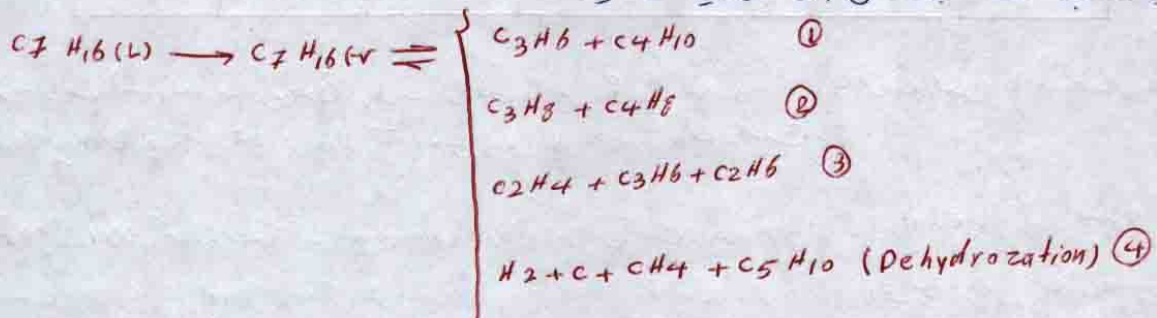 C7 H16(L) ⟶ C7 H16(v ⇌
C3H6 + C4H10 ①
C3H8 + C4H8 ②
C2H4 + C3H6 + C2H6 ③
H2 + C + CH4 + C5H10 (Dehydrozation) ④